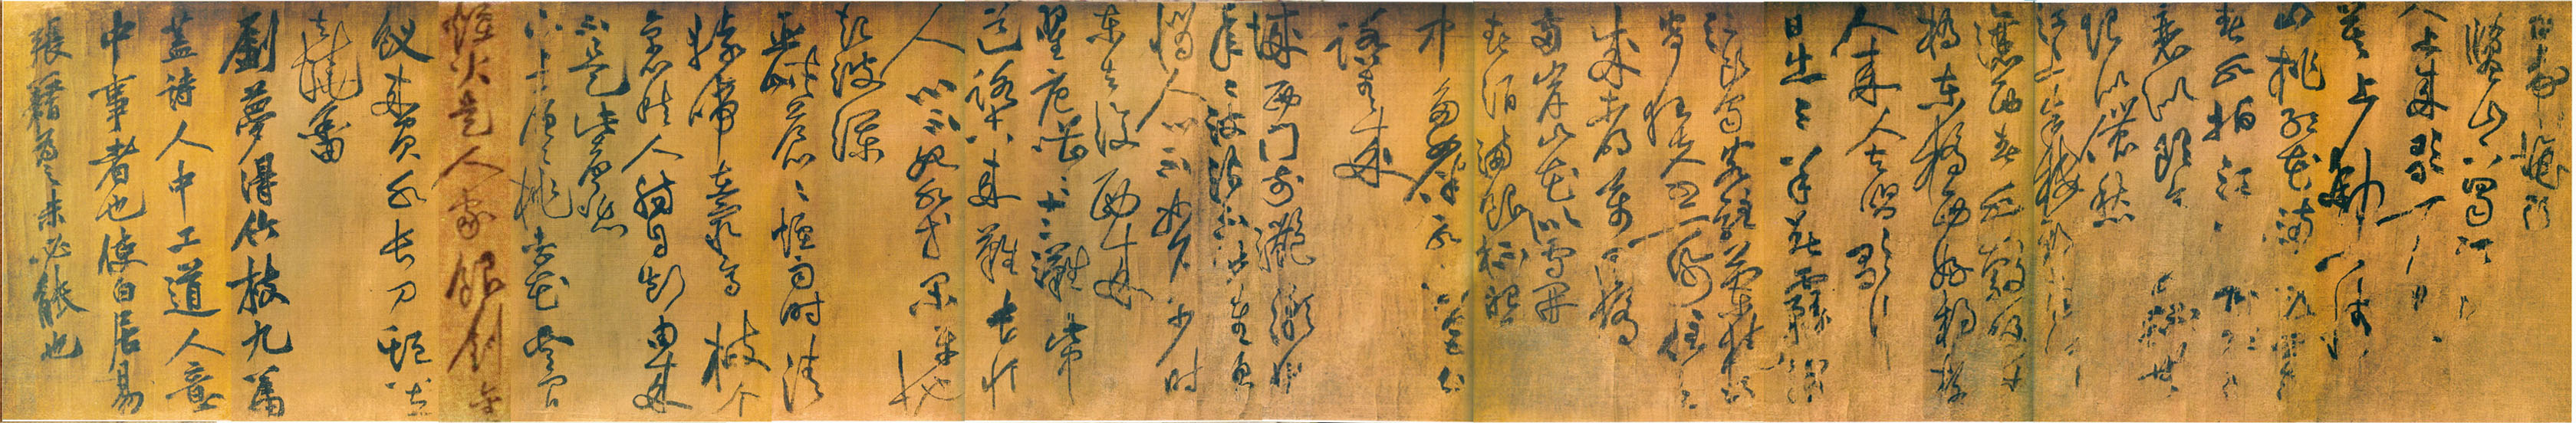 白帝城頭
鹽山下蜀江
人上來歌一
莫上動鄉情
山桃紅花滿上頭
春水拍江
衰似郎意水流無
限似儂愁
江上朱樓新雨晴
瀼西春水縠紋生
橋東橋西好楊柳
人來人去唱歌行
日出三竿春霧消
江頭蜀客駐蘭橈憑
寄狂夫書一紙住在
成都萬里橋
兩岸山花似雪開
春酒滿銀杯昭
中多女伴永安宮外
踏青來
城西門前灩澦堆
年年波浪不能摧
惱人心不如石少時
東去復西來
瞿唐嘈嘈十二灘
道路古來難長恨
人心不如水等閑平地
起波瀾
巫峽蒼蒼煙雨時清
猿啼在最高枝个
裏愁人腸自斷由來
不是此聲悲
山上層層桃李花雲間
煙火是人家銀釧金
釵來負水長刀短笠
去燒畬
劉夢得竹枝九篇
蓋詩人中工道人意
中事者也使白居易
張籍為之未必能也